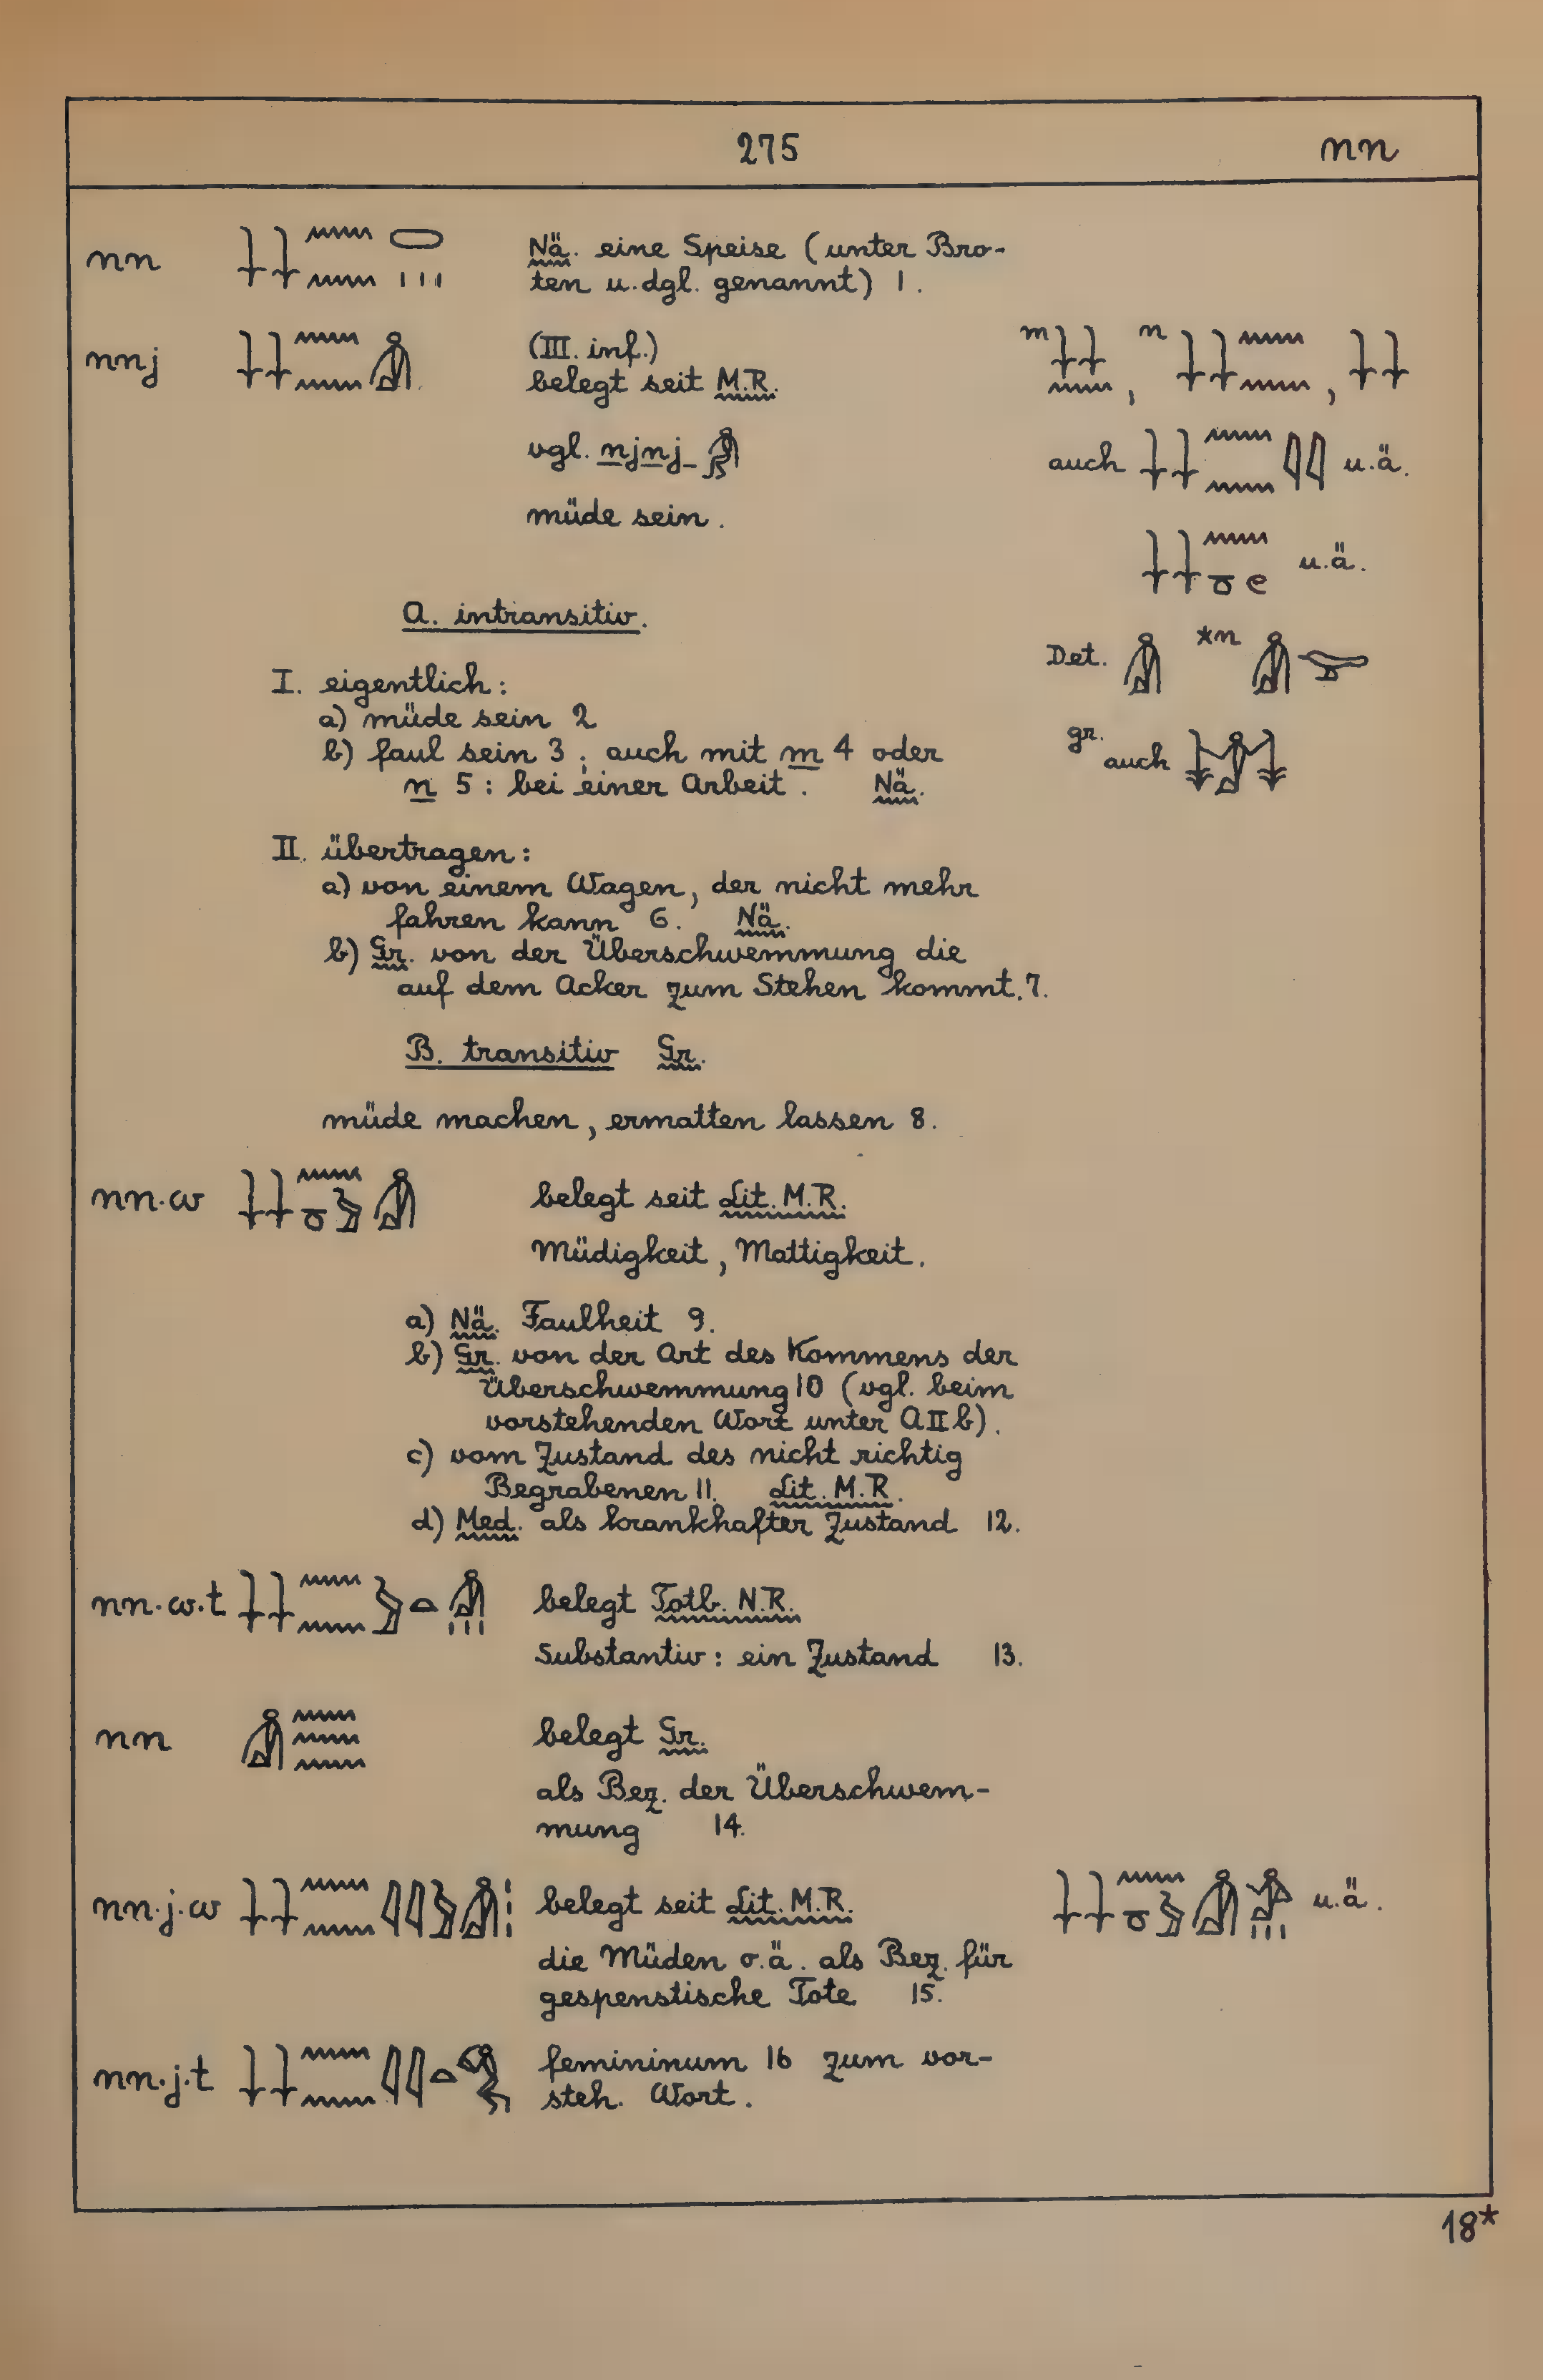 275 nn
nn Nä. eine Speise (unter Bro-
ten u. dgl. genannt) 1.
nnj (III. inf.)
belegt seit M.R.
m , n ,
vgl. njnj
auch u.ä.
müde sein.
u.ä.
A. intransitiv.
Det. *n
I. eigentlich:
a) müde sein 2
b) faul sein 3; auch mit m 4 oder
n 5: bei einer Arbeit. Nä.
gr. auch
II. übertragen:
a) von einem Wagen, der nicht mehr
fahren kann 6. Nä.
b) Gr. von der Überschwemmung die
auf dem Acker zum Stehen kommt. 7.
B. transitiv Gr.
müde machen, ermatten lassen 8.
nn·w belegt seit Lit. M.R.
Müdigkeit, Mattigkeit.
a) Nä. Faulheit 9.
b) Gr. von der Art des Kommens der
Überschwemmung 10 (vgl. beim
vorstehenden Wort unter A II b).
c) vom Zustand des nicht richtig
Begrabenen 11. Lit. M.R.
d) Med. als krankhafter Zustand 12.
nn·w·t belegt Totb. N.R.
Substantiv: ein Zustand 13.
nn belegt Gr.
als Bez. der Überschwem-
mung 14.
nn·j·w belegt seit Lit. M.R. u.ä.
die Müden o.ä. als Bez. für
gespenstische Tote 15.
nn·j·t femininum 16 zum vor-
steh. Wort.
18*